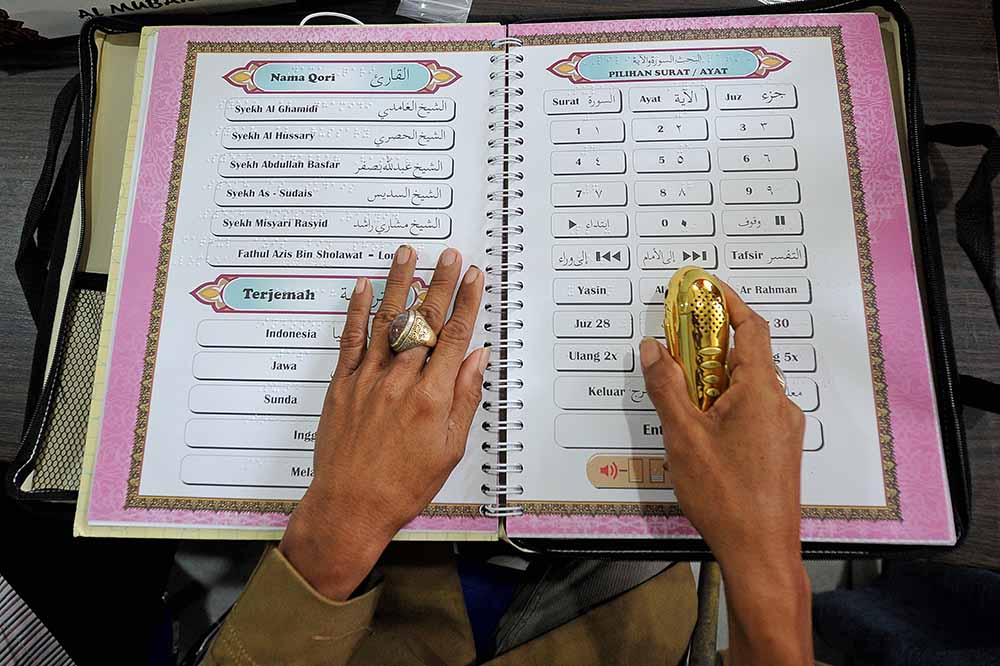 Nama Qori القارئ
Syekh Al Ghamidi الشيخ الغامدي
Syekh Al Hussary الشيخ الحصري
Syekh Abdullah Basfar الشيخ عبدالله بصفر
Syekh As - Sudais الشيخ السديس
Syekh Misyari Rasyid الشيخ مشاري راشد
Fathul Azis Bin Sholawat -
Terjemah
Indonesia
Jawa
Sunda
البحث السورة والآية
PILIHAN SURAT / AYAT
Surat السورة Ayat الآية Juz جزء
1 ١ 2 ٢ 3 ٣
4 ٤ 5 ٥ 6 ٦
7 ٧ 8 ٨ 9 ٩
إبتداء 0 ٠ وقوف
إلى وراء إلى الأمام Tafsir التفسير
Yasin Ar Rahman
Juz 28 30
Ulang 2x 5x
Keluar